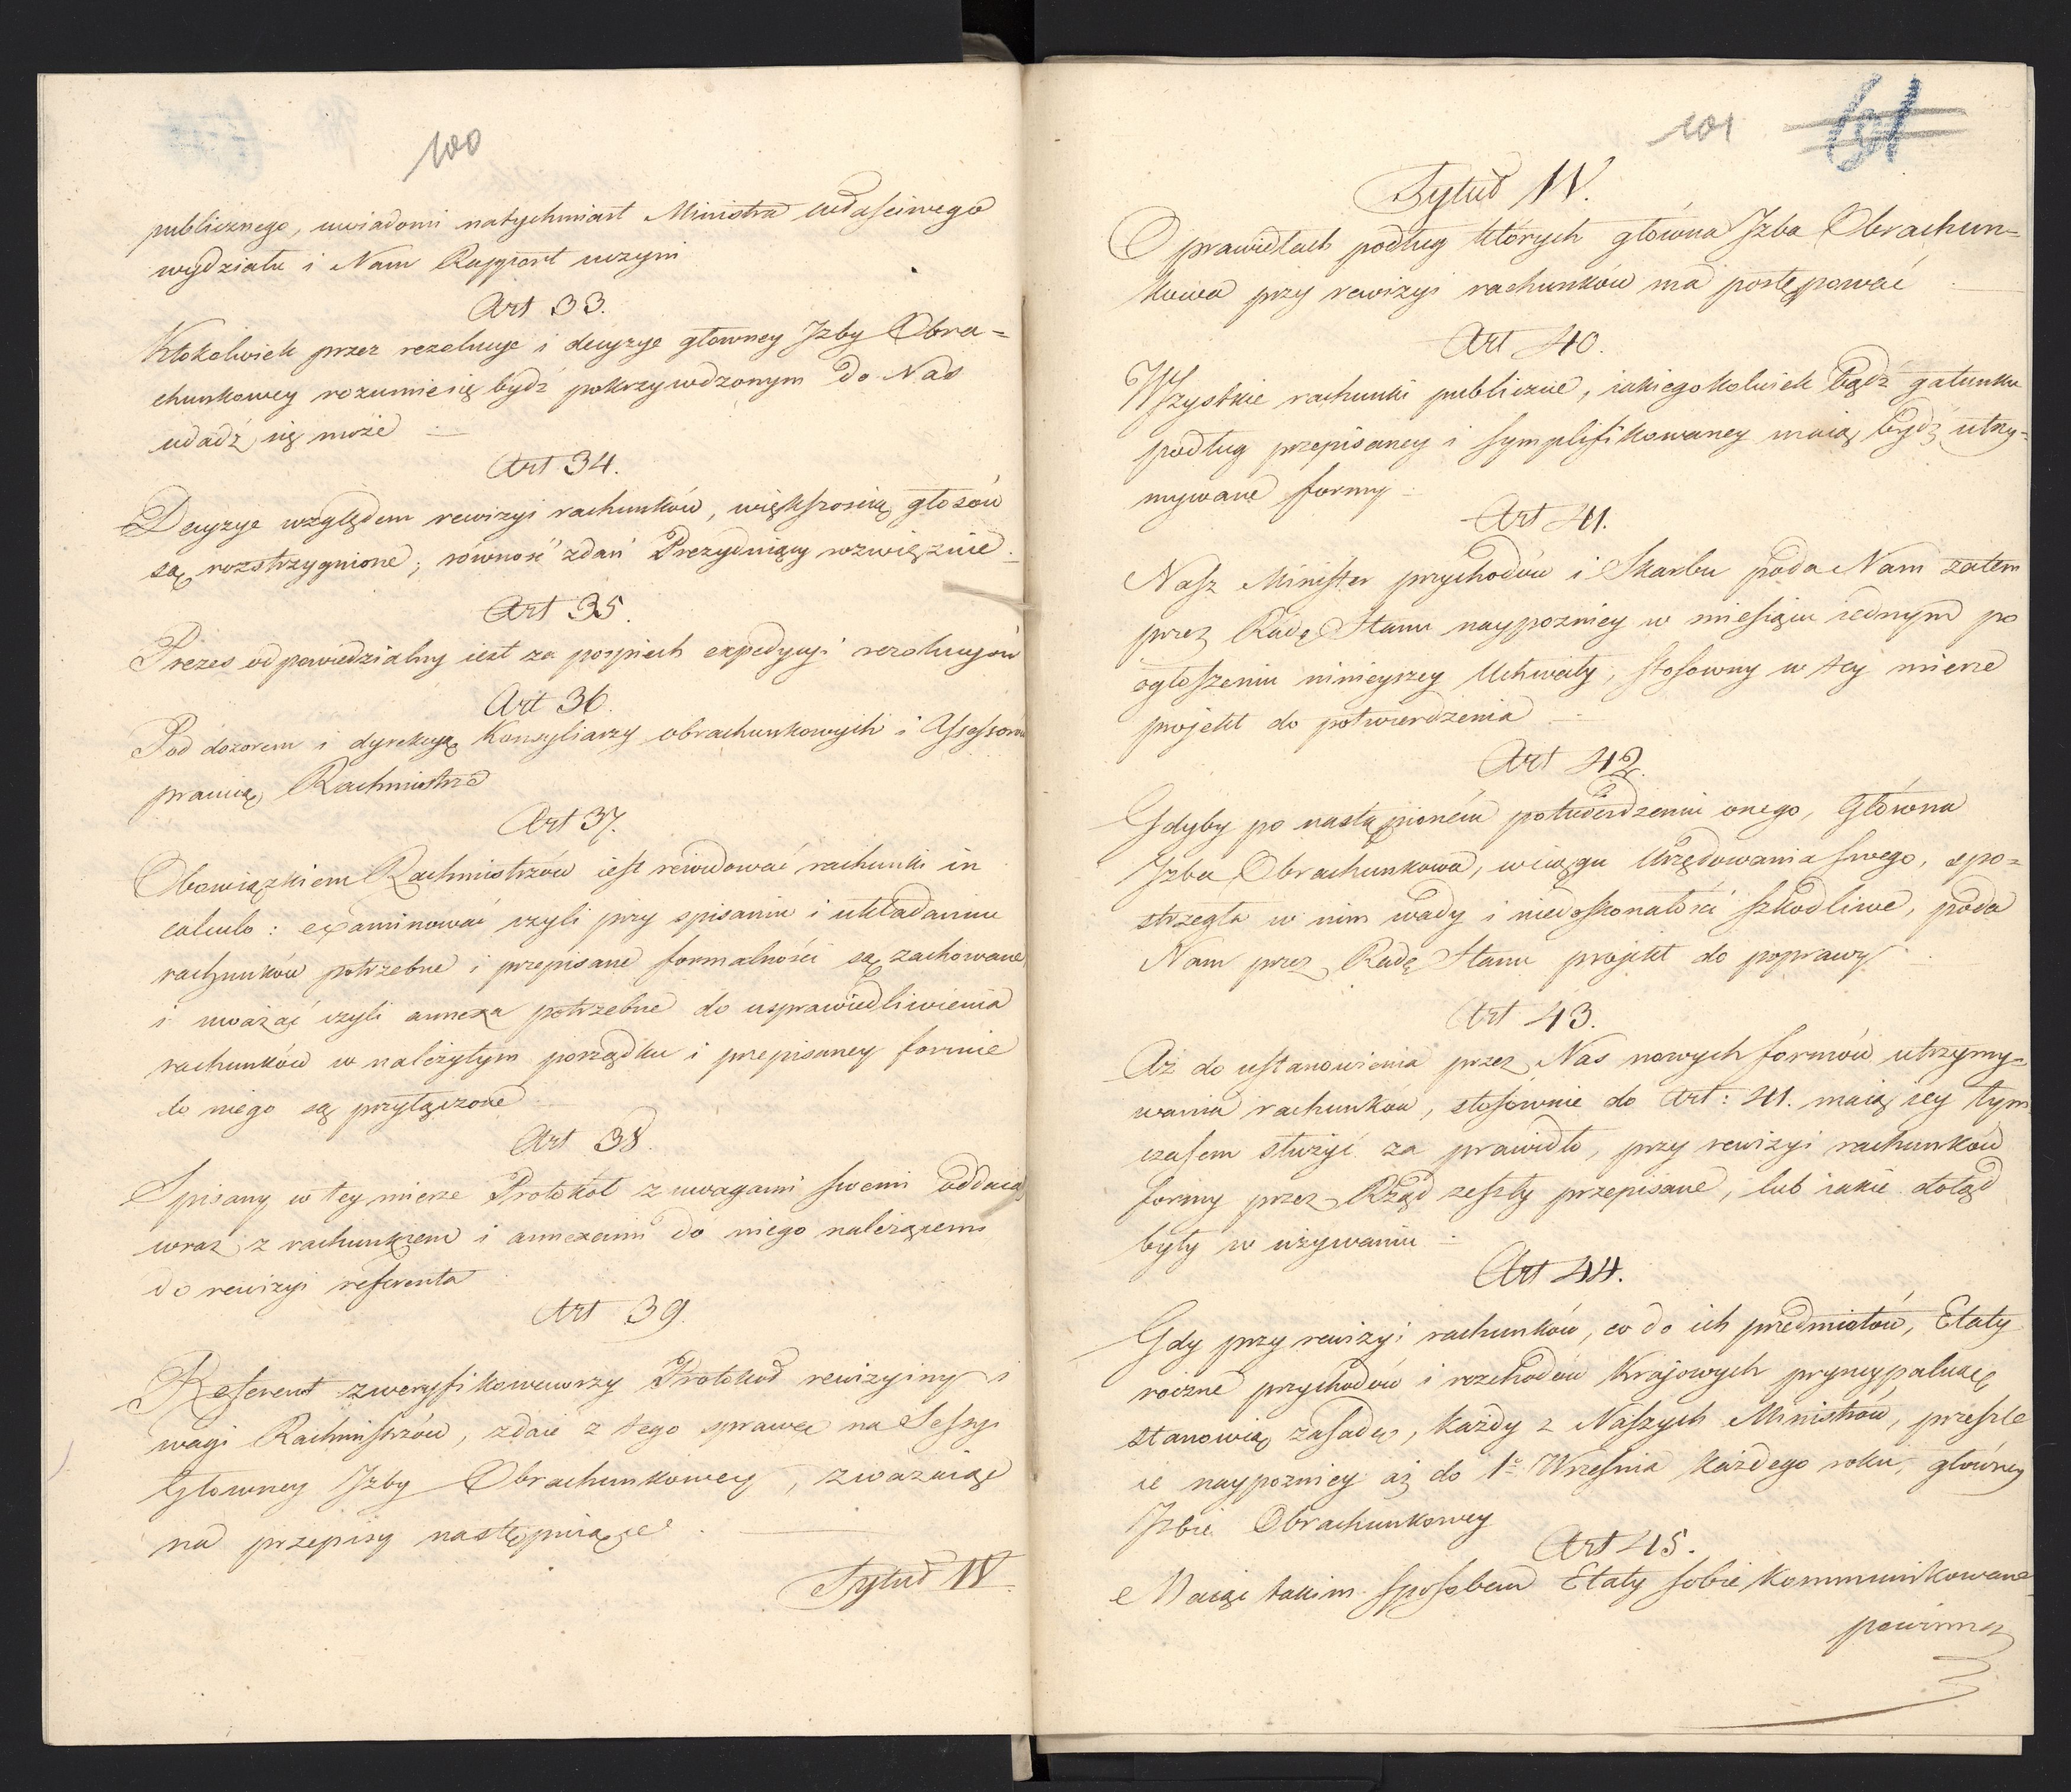 100
publicznego, uwiadomi natychmiast Ministra właściwego
wydziału i Nam Rapport uczyni
Art 33.
Ktokolwiek przez rezolucye i decyzye głowney Jzby Obra=
chunkowey rozumie się bydź pokrzywdzonym do Nas
udadź się może
Art 34.
Decyzye względem rewizyi rachunków, większością głosów
są rozstrzygnione; równość zdań Prezyduiący rozwiąznie.
Art 35.
Prezes odpowiedzialny iest za pospiech expedycyi rezolucyów
Art 36.
Pod dozorem i dyrekcyą Konsyliarzy obrachunkowych i Assessorów
pracuią Rachmistrze
Art 37.
Obowiązkiem Rachmistrzów iest rewidować rachunki in
calculo: examinować czyli przy spisaniu i układaniu
rachunków potrzebne i przepisane formalności są zachowane,
i uważać czyli annexa potrzebne do usprawiedliwienia
rachunków w należytym porządku i przepisaney formie
do niego są przyłączone
Art 38.
Spisany w tey mierze Protokół z uwagami swemi oddaią
wraz z rachunkiem i annexami do niego należącemi
do rewizyi referenta
Art 39.
Referent zweryfikowawszy Protokuł rewizyiny i
wagi Rachmistrzów, zdaie z tego sprawę na Sessyi
Głowney Jzby Obrachunkowey, zważaiąc
na przepisy następuiące.
Tytuł IV.
101 101
Tytuł IV.
O prawidłach podług których główna Jzba Obrachun=
kowa przy rewizyi rachunków ma postępować
Art 40.
Wszystkie rachunki publiczne, iakiegokolwiek bądź gatunku
podług przepisaney i symplifikowaney maią bydź utrzy=
mywane formy
Art 41.
Nasz Minister przychodów i Skarbu poda Nam zatem
przez Radę Stanu naypozniey w miesiącu iednym po
ogłoszeniu ninieyszey Uchwały, stosowny w tey mierze
projekt do potwierdzenia
Art 42.
Gdyby po nastąpioném potwierdzeniu onego, Główna
Jzba Obrachunkowa, w ciągu Urzędowania swego, spo=
strzegła w nim wady i niedoskonałości szkodliwe, poda
Nam przez Radę Stanu projekt do poprawy
Art 43.
Aż do ustanowienia przez Nas nowych formów utrzymy=
wania rachunków, stosównie do Art: 41. maią iey tym
czasem służyć za prawidło, przy rewizyi rachunków
formy przez Rząd zeszły przepisane, lub iakie dotąd
były w używaniu
Art 44.
Gdy przy rewizyi rachunków, co do ich przedmiotów, Etaty
roczne przychodów i rozchodów Krajowych pryncypalną
stanowią zasadę, każdy z Naszych Ministrów, przeszle
ie naypozniey aż do 1o Września każdego roku, główney
Jzbie Obrachunkowey
Art 45.
Maiąc takim sposobem Etaty sobie kommunikowane
powinna